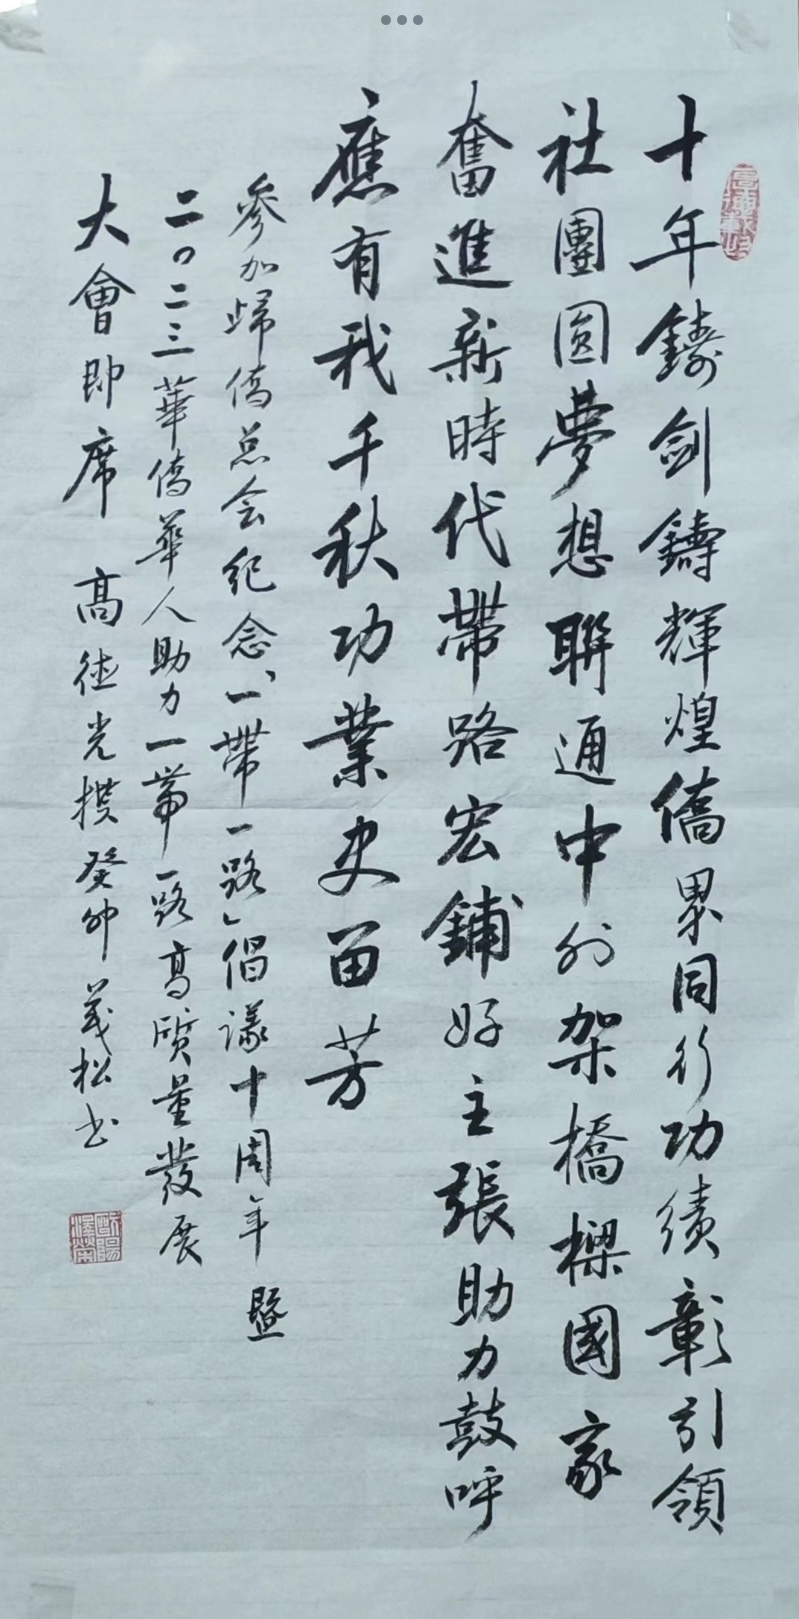 十年鑄劍鑄輝煌僑界同行功績彰引領
社團圓夢想聯通中外架橋樑國家
奮進新時代帶路宏鋪好主張助力鼓呼
應有我千秋功業史留芳
參加歸僑总会纪念“一帶一路”倡議十周年暨
二〇二三華僑華人助力一帶一路高质量發展
大會即席 高德光撰癸卯義松书
厚德載物
歐陽澤榮